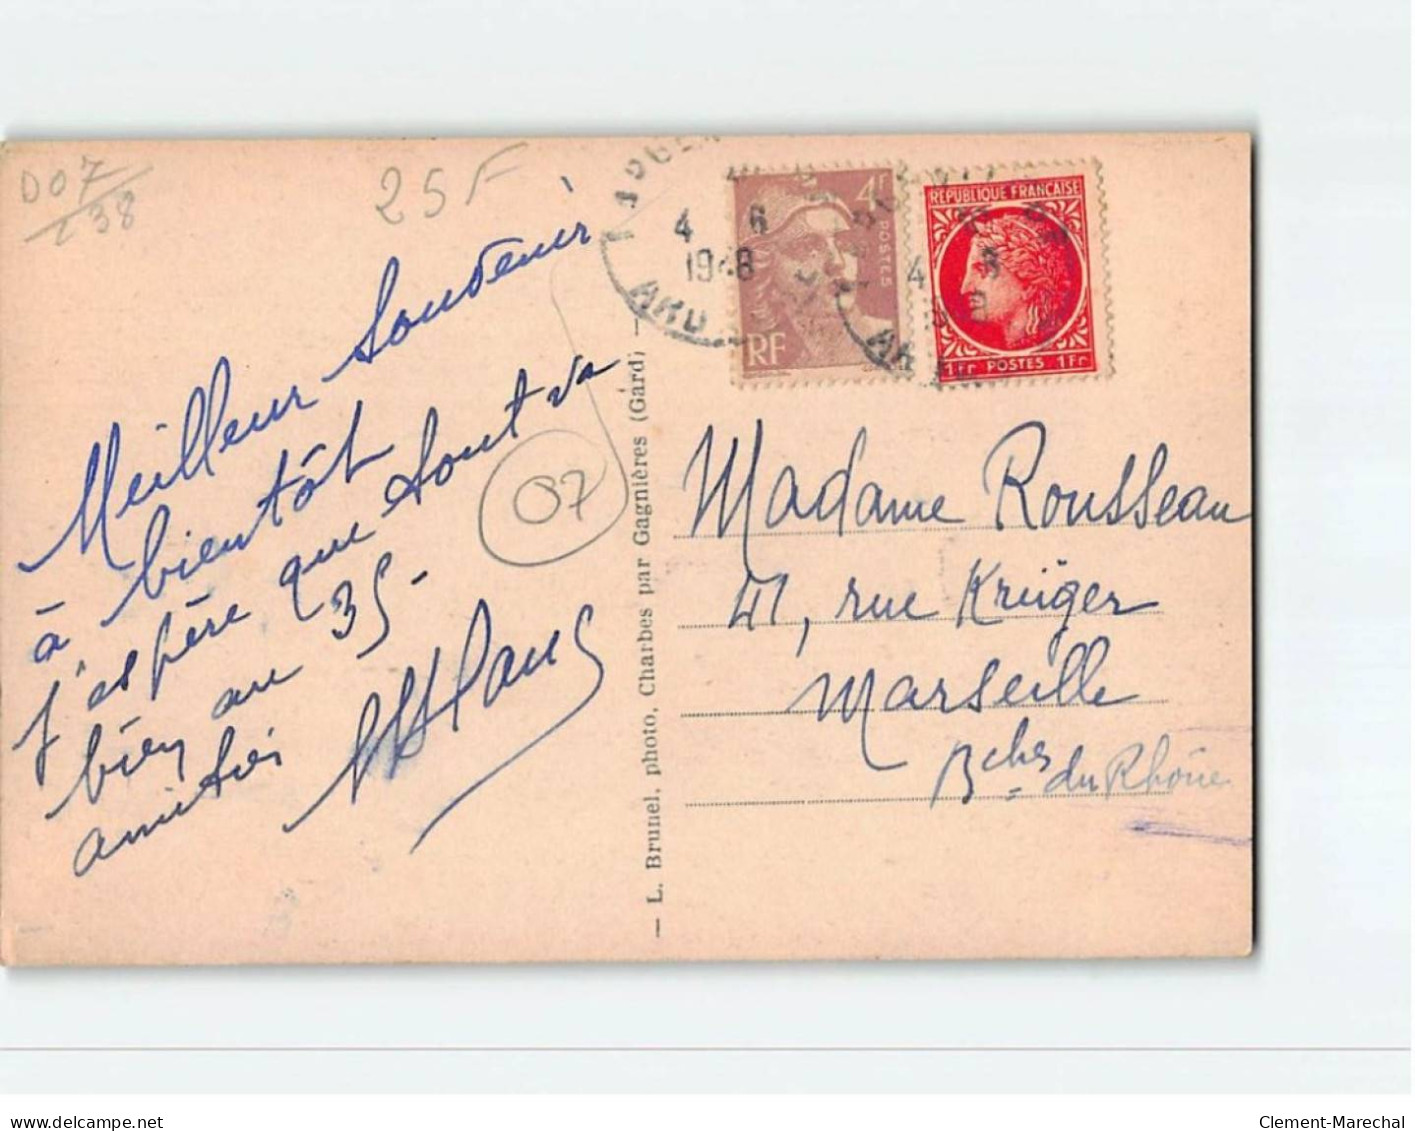 D07
/38
25F
Meilleur Souvenir
à bientôt
j'espère que tout va
bien au 35-
amitiés
07
— L. Brunel, photo, Charbes par Gagnières (Gard) —
4 6
1948
4F
POSTES
RF
4
RÉPUBLIQUE FRANÇAISE
1Fr POSTES 1Fr
Madame Rousseau
41, rue Krüger
Marseille
Bches du Rhône
delcampe.net
Clement-Marechal